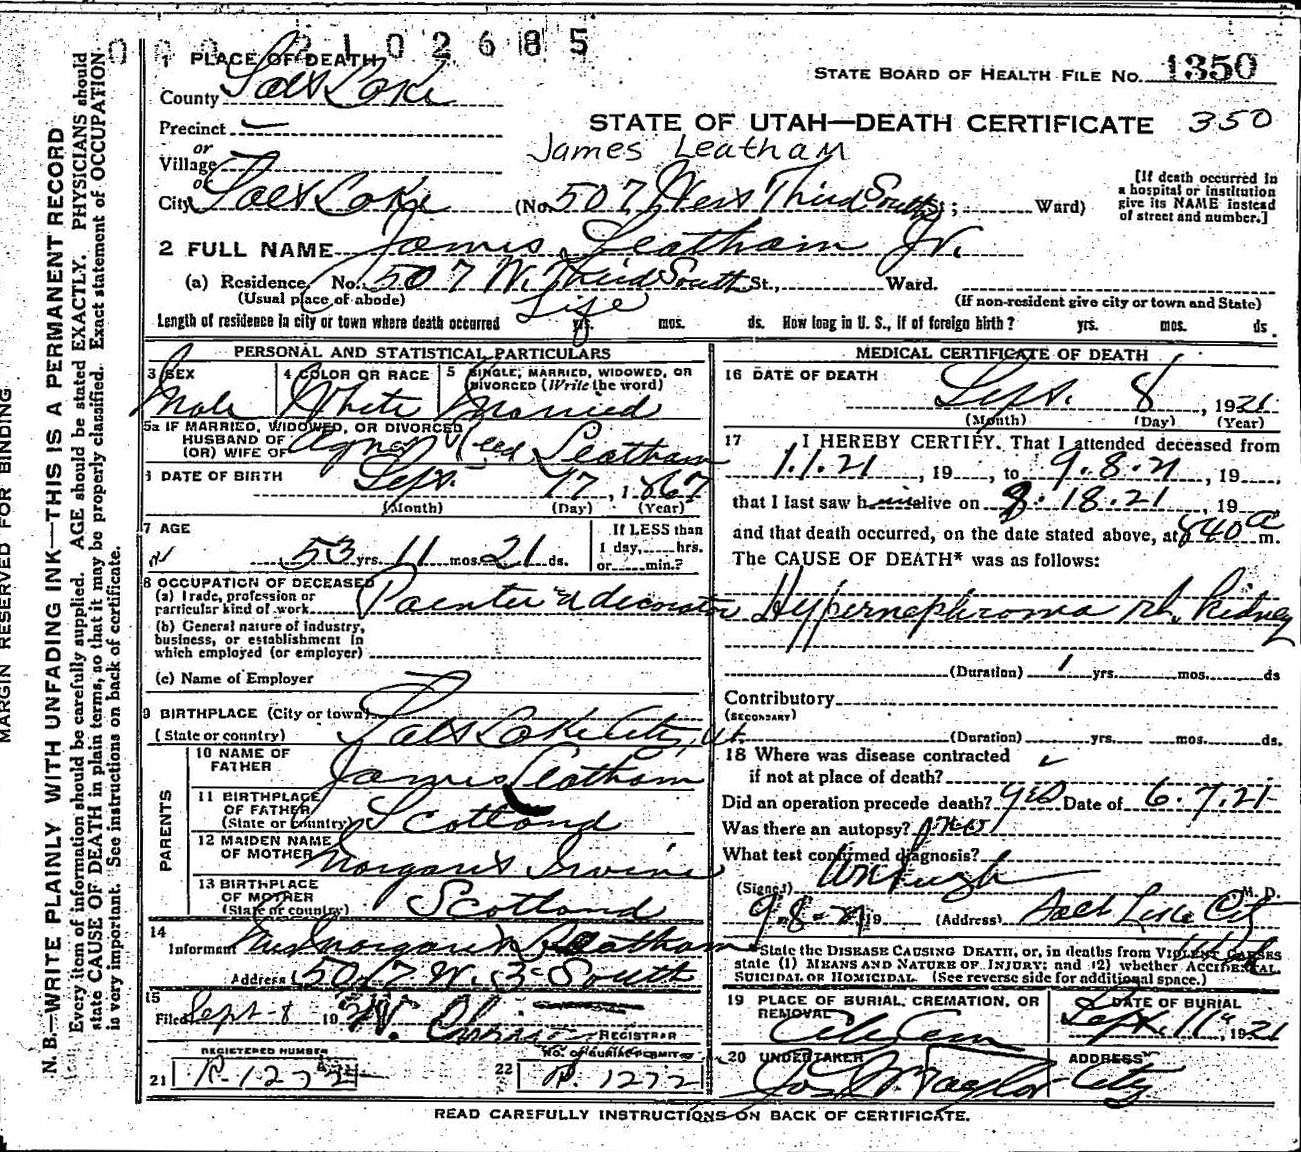 0 0 0 2 1 0 2 6 8 5
1 PLACE OF DEATH
STATE BOARD OF HEALTH FILE NO. 1350
County Salt Lake
Precinct
STATE OF UTAH—DEATH CERTIFICATE 350
or
Village
James Leatham
or
City Salt Lake (No. 507 West Third South St; Ward)
[If death occurred in
a hospital or institution
give its NAME instead
of street and number.]
2 FULL NAME James Leatham Jr.
(a) Residence No. 507 W. Third South St., Ward.
(Usual place of abode) (If non-resident give city or town and State)
Length of residence in city or town where death occurred Life yrs. mos. ds. How long in U. S., if of foreign birth? yrs. mos. ds.
PERSONAL AND STATISTICAL PARTICULARS
3 SEX 4 COLOR OR RACE 5 SINGLE, MARRIED, WIDOWED, OR
DIVORCED (Write the word)
Male White Married
5a IF MARRIED, WIDOWED, OR DIVORCED
HUSBAND OF
(OR) WIFE OF Leatham
6 DATE OF BIRTH Sept. 17, 1867
(Month) (Day) (Year)
7 AGE If LESS than
53 yrs. 11 mos. 21 ds. 1 day, hrs.
or min.?
8 OCCUPATION OF DECEASED
(a) Trade, profession or
particular kind of work Painter & decorator
(b) General nature of industry,
business, or establishment in
which employed (or employer)
(c) Name of Employer
9 BIRTHPLACE (City or town)
(State or country) Salt Lake City, Ut.
PARENTS
10 NAME OF
FATHER James Leatham
11 BIRTHPLACE
OF FATHER
(State or country) Scotland
12 MAIDEN NAME
OF MOTHER Margaret Irvine
13 BIRTHPLACE
OF MOTHER
(State or country) Scotland
14
Informant Mrs Margaret Leatham
Address 507 W. 3 South
15
Filed Sept-8 1921
REGISTRAR
REGISTERED NUMBER NO. OF BURIAL PERMIT
21 R-1272 22 R. 1272
MEDICAL CERTIFICATE OF DEATH
16 DATE OF DEATH
Sept. 8, 1921
(Month) (Day) (Year)
17 I HEREBY CERTIFY, That I attended deceased from
1.1.21, 19, to 9.8.21, 19
that I last saw him alive on 8.18.21, 19
and that death occurred, on the date stated above, at 840 a m.
The CAUSE OF DEATH* was as follows:
Hypernephroma rt. kidney
(Duration) 1 yrs. mos. ds
Contributory
(SECONDARY)
(Duration) yrs. mos. ds.
18 Where was disease contracted
if not at place of death?
Did an operation precede death? yes Date of 6.7.21
Was there an autopsy?
What test confirmed diagnosis?
(Signed) M. D.
9-8-21, 19 (Address) Salt Lake City
*State the DISEASE CAUSING DEATH, or, in deaths from VIOLENT CAUSES
state (1) MEANS AND NATURE OF INJURY; and (2) whether ACCIDENTAL,
SUICIDAL OR HOMICIDAL. (See reverse side for additional space.)
19 PLACE OF BURIAL, CREMATION, OR
REMOVAL City Cem
DATE OF BURIAL
Sept. 11, 1921
20 UNDERTAKER ADDRESS
Jos. Wm. Taylor City
READ CAREFULLY INSTRUCTIONS ON BACK OF CERTIFICATE.
MARGIN RESERVED FOR BINDING
N. B.—WRITE PLAINLY WITH UNFADING INK—THIS IS A PERMANENT RECORD
Every item of information should be carefully supplied. AGE should be stated EXACTLY. PHYSICIANS should
state CAUSE OF DEATH in plain terms, so that it may be properly classified. Exact statement of OCCUPATION
is very important. See instructions on back of certificate.